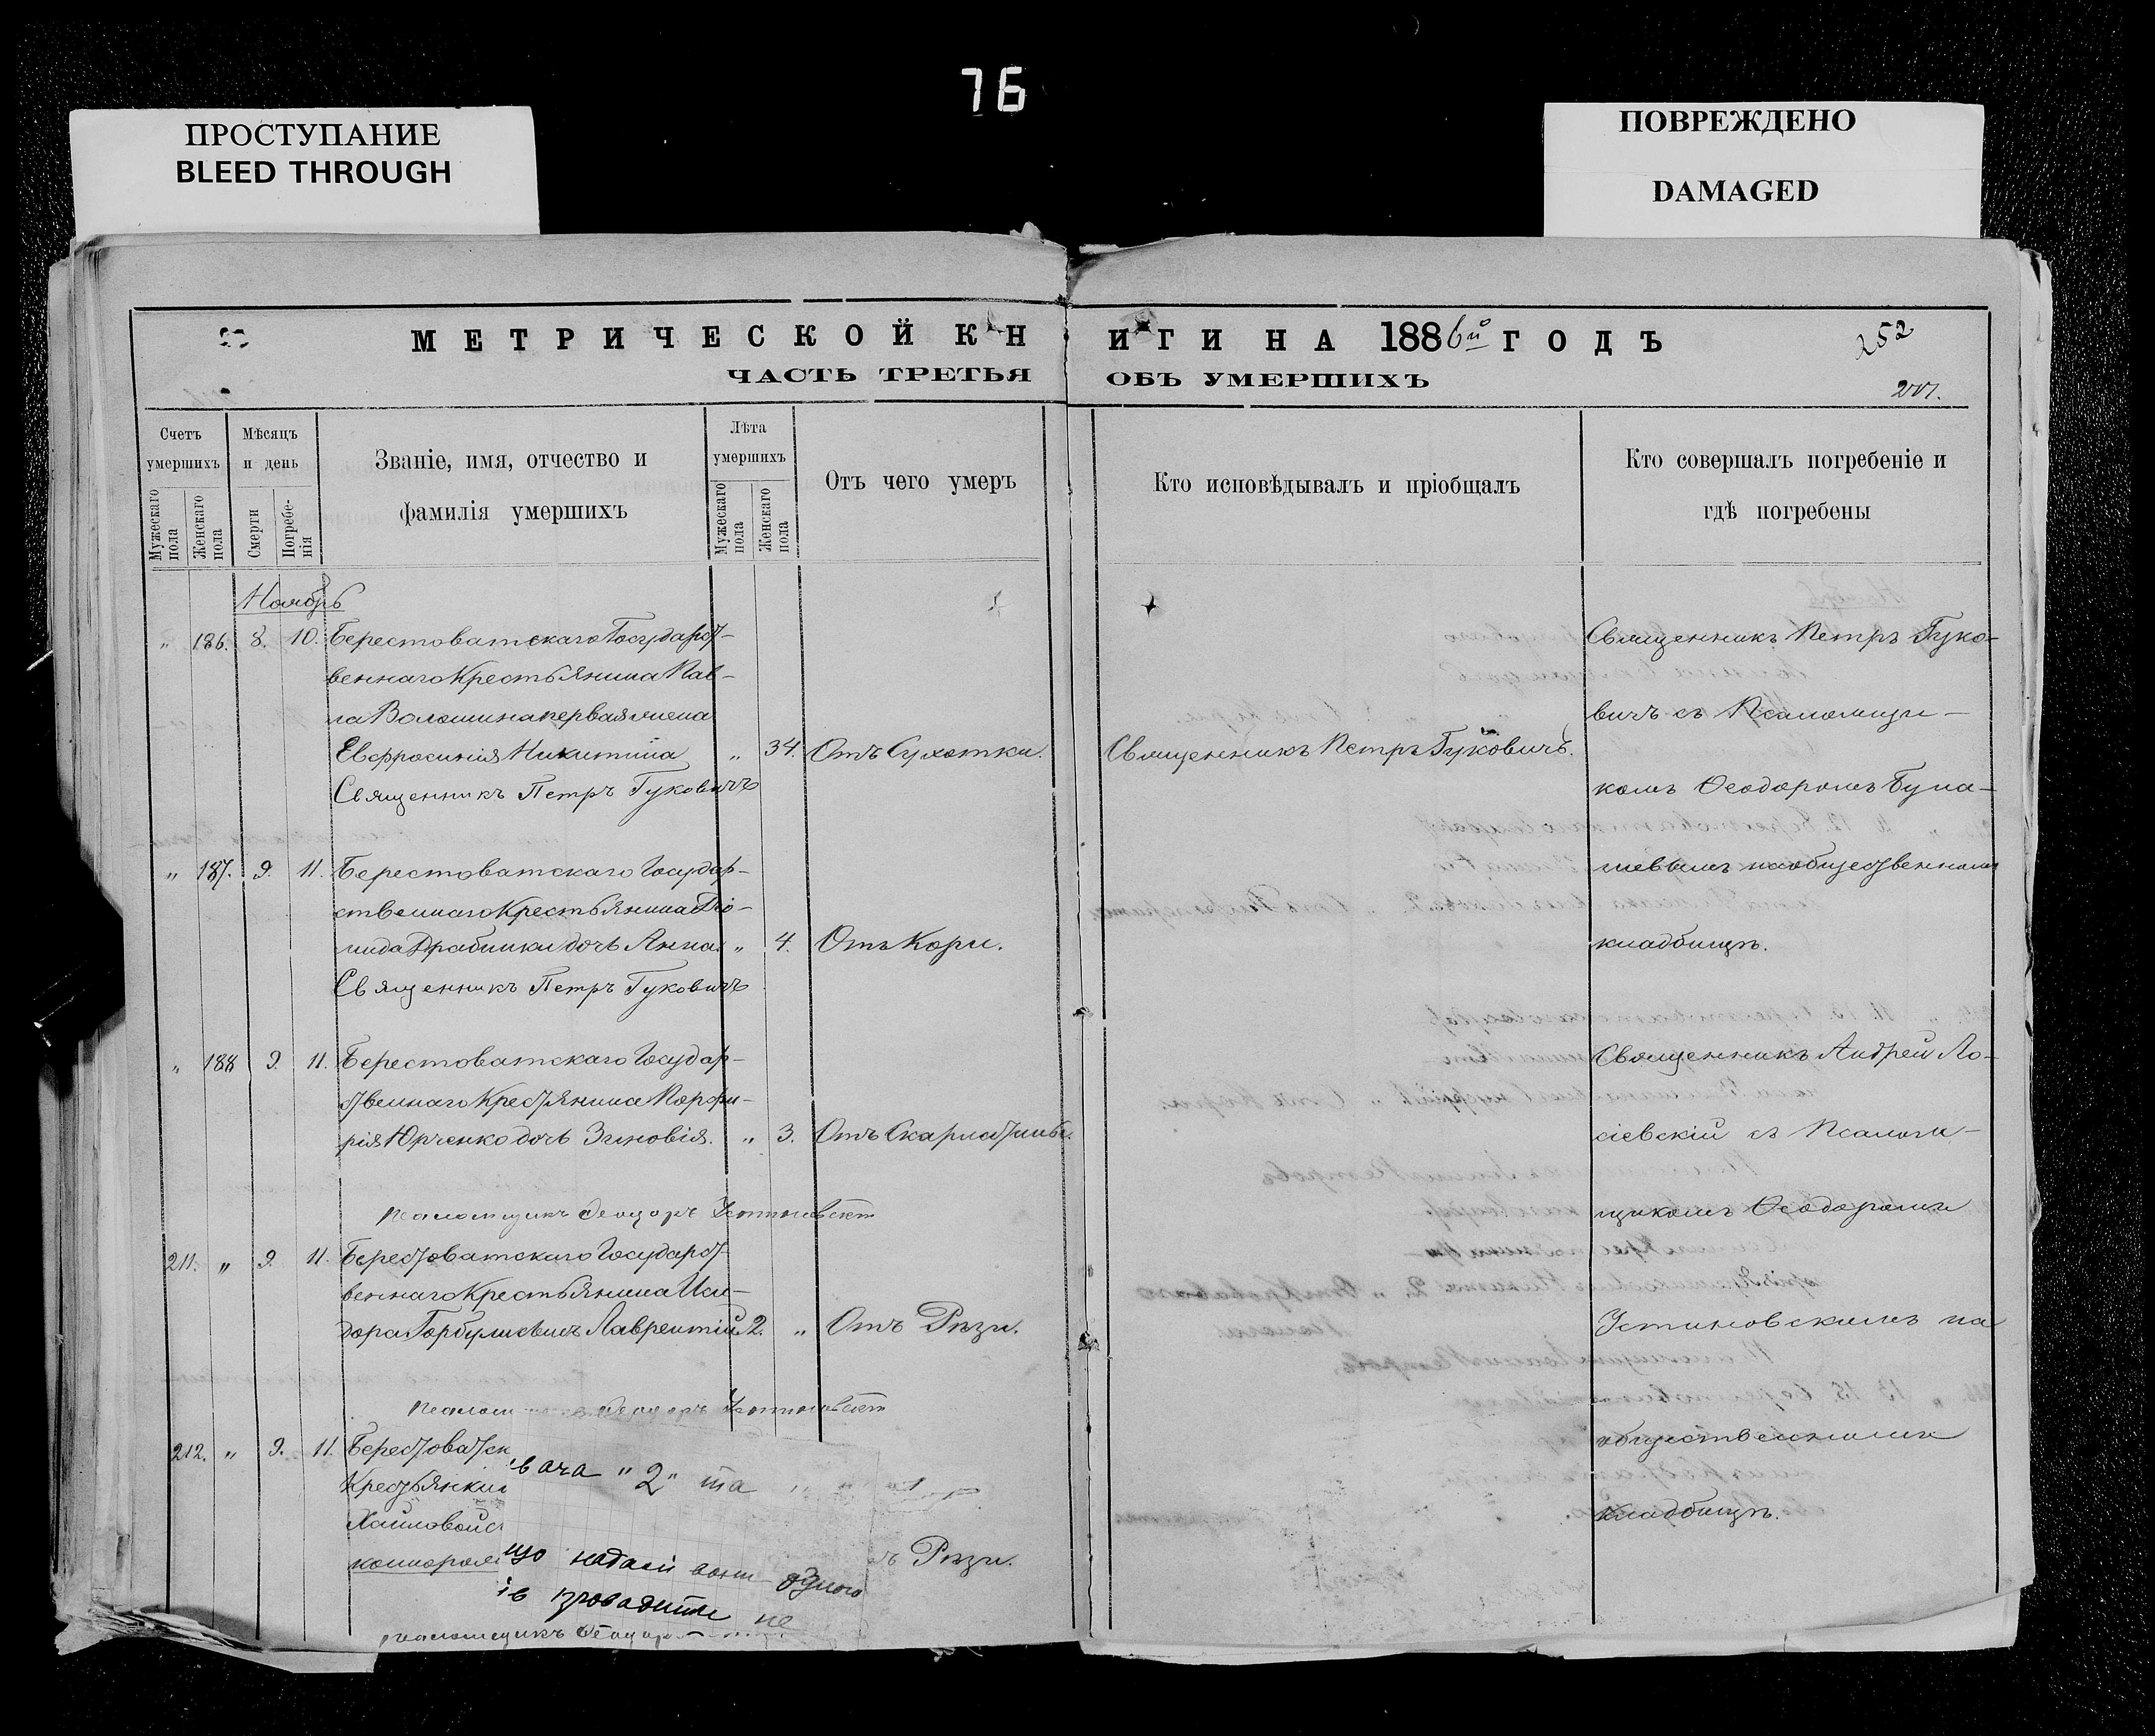 76
ПРОСТУПАНИЕ
BLEED THROUGH
ПОВРЕЖДЕНО
DAMAGED
МЕТРИЧЕСКОЙ КНИГИ НА 1886й ГОДЪ
252
ЧАСТЬ ТРЕТЬЯ ОБЪ УМЕРШИХЪ
Счетъ умершихъ
Мужескаго пола
Женскаго пола
Мѣсяцъ и день
Смерти
Погребенія
Званіе, имя, отчество и
фамилія умершихъ
Лѣта умершихъ
Мужескаго пола
Женскаго пола
Отъ чего умеръ
Кто исповѣдывалъ и пріобщалъ
Кто совершалъ погребеніе и
гдѣ погребены
Ноябрь
" 186. 8. 10. Берестоватскаго Государст-
веннаго Крестьянина Пав-
ла Волошина первая жена
Евфросинія Никитина " 34. Отъ Сухотки. Священникъ Петръ Гуковичъ.
Священникъ Петръ Гуковичъ
Священникъ Петръ Гуко-
вичъ съ Псаломщи-
комъ Ѳеодоромъ
на общественномъ
кладбищѣ.
" 187. 9. 11. Берестоватскаго Государ-
ственнаго Крестьянина Діо-
мида Драбинки дочь Анна. " 4. Отъ Кори.
Священникъ Петръ Гуковичъ
" 188 9. 11. Берестоватскаго Государ-
ственнаго Крестьянина Порфи-
рія Юрченко дочь Зиновія. " 3. Отъ Скарлатины.
Псаломщикъ Ѳеодоръ Устиновскій
Священникъ Андрей Ло-
сіевскій съ Псалом-
щикомъ Ѳеодоромъ
Устиновскимъ на
общественномъ
кладбищѣ.
211. " 9. 11. Берестоватскаго Государст-
веннаго Крестьянина Иси-
дора сынъ Лаврентій 2. " Отъ Рѣзи.
Псаломщикъ Ѳеодоръ Устиновскій
212. " 9. 11. Берестоватск
Крестьянки
вача "2" та
що надалі вони
провадити не
ъ Рѣзи.
Псаломщикъ Ѳеодоръ